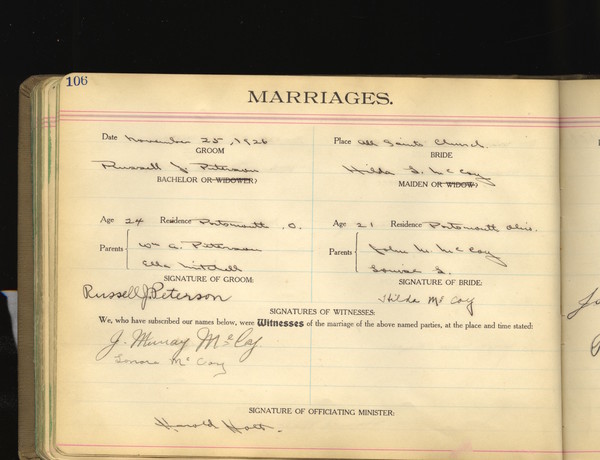 106
MARRIAGES.
Date November 25, 1926 Place All Saints Church.
GROOM BRIDE
Russell J Peterson Hilda L. McCoy
BACHELOR OR WIDOWER? MAIDEN OR WIDOW?
Age 24 Residence Portsmouth, O. Age 21 Residence Portsmouth Ohio.
Parents Wm A. Peterson Parents John M. McCoy
Ella Mitchell Louise L.
SIGNATURE OF GROOM: SIGNATURE OF BRIDE:
Russell J. Peterson Hilda McCoy
SIGNATURES OF WITNESSES:
We, who have subscribed our names below, were Witnesses of the marriage of the above named parties, at the place and time stated:
J. Murray McCoy
Lenore McCoy
SIGNATURE OF OFFICIATING MINISTER:
Harold Holt.